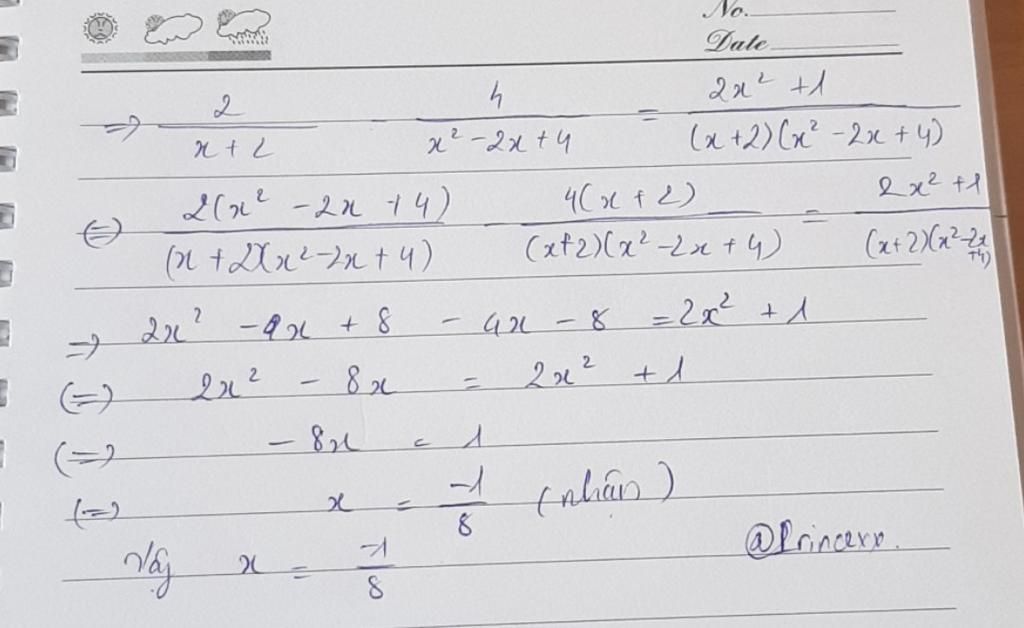 No.
Date
=> 2/(x+2) - 4/(x² - 2x + 4) = (2x² + 1)/((x+2)(x² - 2x + 4))
(=) 2(x² - 2x + 4)/((x+2)(x² - 2x + 4)) 4(x+2)/((x+2)(x² - 2x + 4)) = (2x² + 1)/((x+2)(x² - 2x + 4))
=> 2x² - 4x + 8 - 4x - 8 = 2x² + 1
(=) 2x² - 8x = 2x² + 1
(=) - 8x = 1
(=) x = -1/8 (nhận)
Vậy x = -1/8
@Princexx.